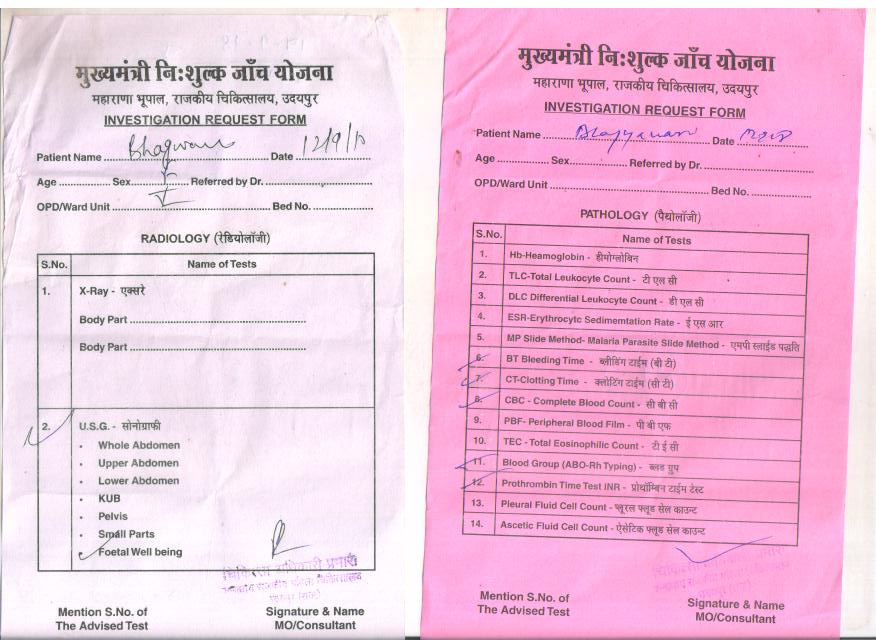 मुख्यमंत्री निःशुल्क जाँच योजना
महाराणा भूपाल, राजकीय चिकित्सालय, उदयपुर
INVESTIGATION REQUEST FORM
Patient Name Bhagwan Date 12/9/
Age Sex F Referred by Dr.
OPD/Ward Unit I Bed No.
RADIOLOGY (रेडियोलॉजी)
S.No. Name of Tests
1. X-Ray - एक्सरे
Body Part
Body Part
2. U.S.G. - सोनोग्राफी
• Whole Abdomen
• Upper Abdomen
• Lower Abdomen
• KUB
• Pelvis
• Small Parts
Foetal Well being
चिकित्सा अधिकारी प्रभारी
Mention S.No. of
The Advised Test
Signature & Name
MO/Consultant
मुख्यमंत्री निःशुल्क जाँच योजना
महाराणा भूपाल, राजकीय चिकित्सालय, उदयपुर
INVESTIGATION REQUEST FORM
Patient Name Date
Age Sex Referred by Dr.
OPD/Ward Unit Bed No.
PATHOLOGY (पैथोलॉजी)
S.No. Name of Tests
1. Hb-Heamoglobin - हीमोग्लोबिन
2. TLC-Total Leukocyte Count - टी एल सी
3. DLC Differential Leukocyte Count - डी एल सी
4. ESR-Erythrocytc Sedimemtation Rate - ई एस आर
5. MP Slide Method- Malaria Parasite Slide Method - एमपी स्लाईड पद्धति
6. BT Bleeding Time - ब्लीडिंग टाईम (बी टी)
7. CT-Clotting Time - क्लोटिंग टाईम (सी टी)
8. CBC - Complete Blood Count - सी बी सी
9. PBF- Peripheral Blood Film - पी बी एफ
10. TEC - Total Eosinophilic Count - टी ई सी
11. Blood Group (ABO-Rh Typing) - ब्लड ग्रुप
12. Prothrombin Time Test INR - प्रोथॉम्बिन टाईम टेस्ट
13. Pleural Fluid Cell Count - प्लूरल फ्लूड सेल काउन्ट
14. Ascetic Fluid Cell Count - ऐसेटिक फ्लूड सेल काउन्ट
Mention S.No. of
The Advised Test
Signature & Name
MO/Consultant